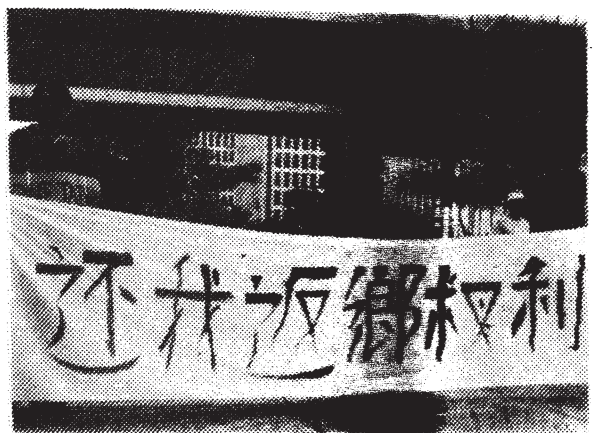 还我返鄉权利